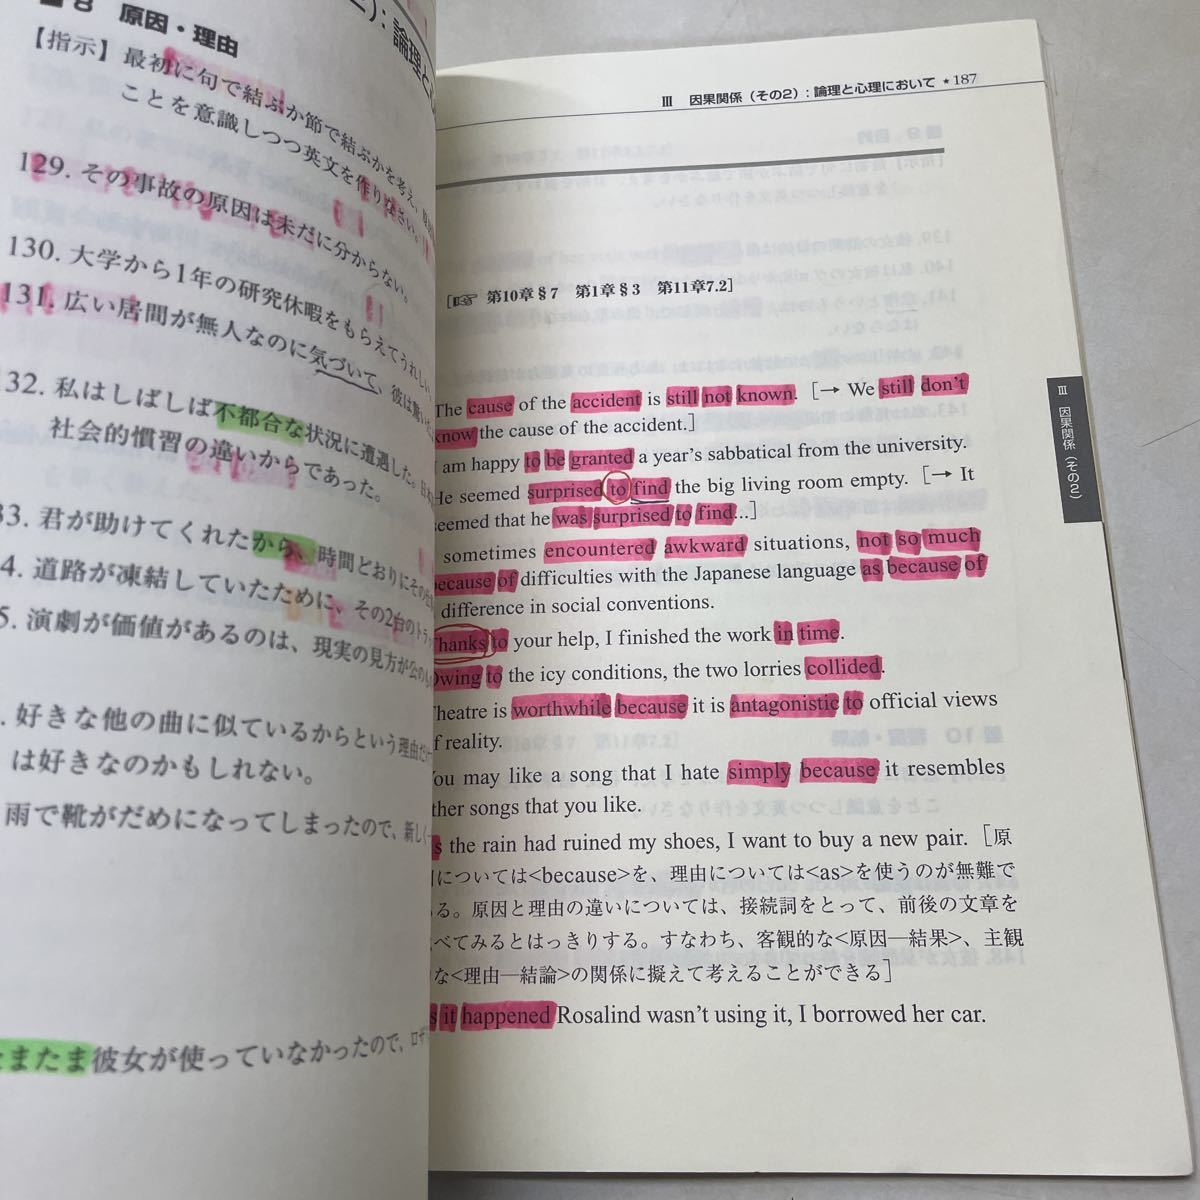 ■8 原因・理由
2）：論理と
【指示】最初に句で結ぶか節で結ぶかを考え、
ことを意識しつつ英文を作りなさい。
129. その事故の原因は未だに分からない。
130. 大学から1年の研究休暇をもらえてうれしい。
131. 広い居間が無人なのに気づいて、彼は驚い
132. 私はしばしば不都合な状況に遭遇した。日本
社会的慣習の違いからであった。
33. 君が助けてくれたから、時間どおりにその仕
4. 道路が凍結していたために、その2台のトラッ
5. 演劇が価値があるのは、現実の見方が公のも
. 好きな他の曲に似ているからという理由だけ
は好きなのかもしれない。
雨で靴がだめになってしまったので、新しく
たまたま彼女が使っていなかったので、ロザ
Ⅲ 因果関係（その2）：論理と心理において ★187
[☞ 第10章§7 第1章§3 第11章7.2]
The cause of the accident is still not known. [→ We still don't
know the cause of the accident.]
I am happy to be granted a year's sabbatical from the university.
He seemed surprised to find the big living room empty. [→ It
seemed that he was surprised to find...]
sometimes encountered awkward situations, not so much
because of difficulties with the Japanese language as because of
difference in social conventions.
Thanks to your help, I finished the work in time.
Owing to the icy conditions, the two lorries collided.
Theatre is worthwhile because it is antagonistic to official views
of reality.
You may like a song that I hate simply because it resembles
other songs that you like.
As the rain had ruined my shoes, I want to buy a new pair. [原
因については<because>を、理由については<as>を使うのが無難で
ある。原因と理由の違いについては、接続詞をとって、前後の文章を
べてみるとはっきりする。すなわち、客観的な<原因―結果>、主観
的な<理由―結論>の関係に擬えて考えることができる]
As it happened Rosalind wasn't using it, I borrowed her car.
Ⅲ 因果関係（その2）